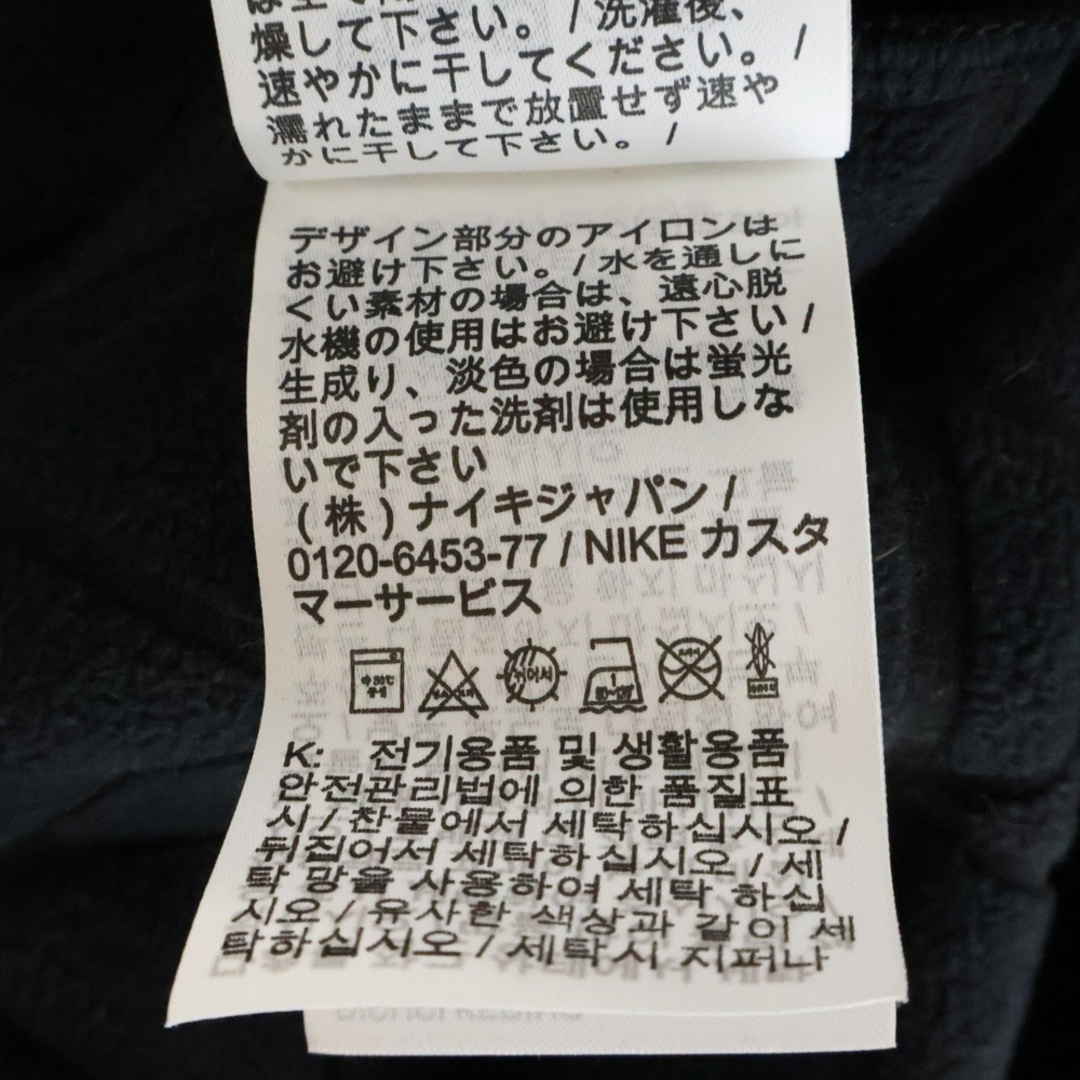 燥して下さい。 / 洗濯後、
速やかに干してください。 /
濡れたままで放置せず速や
かに干して下さい。 /
デザイン部分のアイロンは
お避け下さい。/ 水を通しに
くい素材の場合は、遠心脱
水機の使用はお避け下さい /
生成り、淡色の場合は蛍光
剤の入った洗剤は使用しな
いで下さい
(株)ナイキジャパン /
0120-6453-77 / NIKE カスタ
マーサービス
K: 전기용품 및 생활용품
안전관리법에 의한 품질표
시 / 찬물에서 세탁하십시오 /
뒤집어서 세탁하십시오 / 세
탁 망을 사용하여 세탁 하십
시오 / 유사한 색상과 같이 세
탁하십시오 / 세탁시 지퍼나